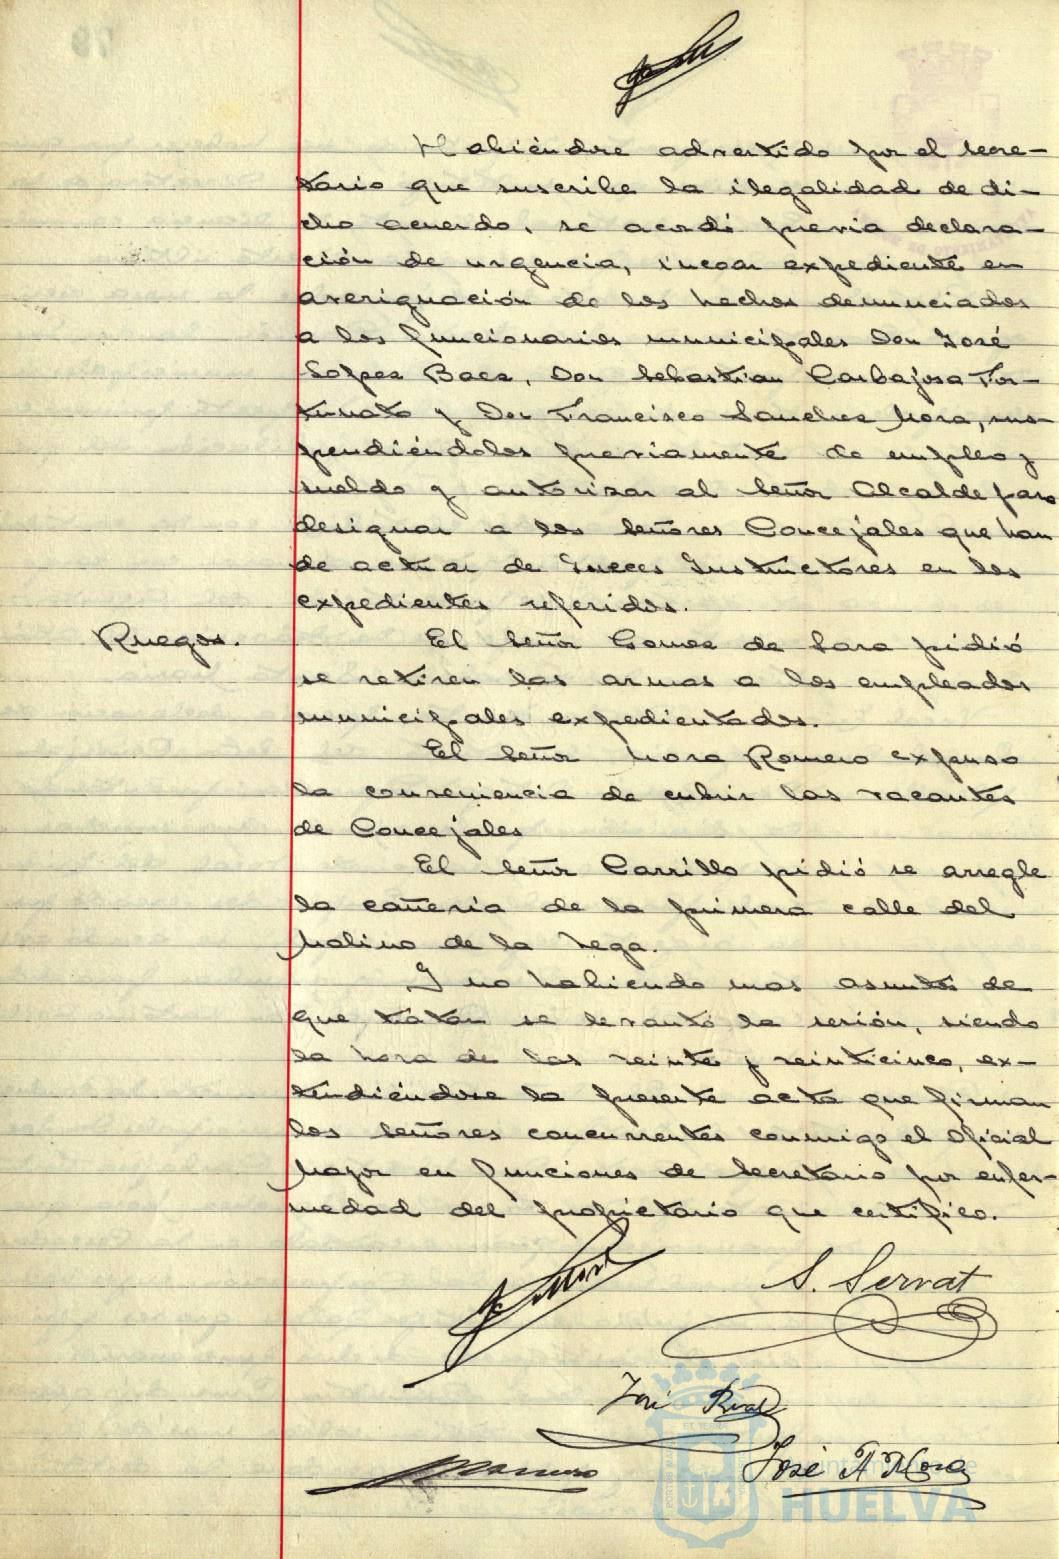 Habiéndose advertido por el Secre-
tario que suscribe la ilegalidad de di-
cho acuerdo, se acordó previa declara-
ción de urgencia, incoar expediente en
averiguación de los hechos denunciados
a los funcionarios municipales Don José
Lopez Baez, Don Sebastian Carbajosa For-
tunato y Don Francisco Sanchez Mora, sus-
pendiéndoles previamente de empleo y
sueldo y autorizar al Señor Alcalde para
designar a los Señores Concejales que han
de actuar de Jueces Instructores en los
expedientes referidos.
Ruegos.
El Señor Gomez de Lara pidió
se retiren las armas a los empleados
municipales expedientados.
El Señor Mora Romero expuso
la conveniencia de cubrir las vacantes
de Concejales
El Señor Carrillo pidió se arregle
la cañeria de la primera calle del
Molino de la Vega.
Y no habiendo mas asuntos de
que tratar se levantó la sesión, siendo
la hora de las veinte y veinticinco, ex-
tendiéndose la presente acta que firman
los Señores concurrentes conmigo el Oficial
Mayor en funciones de Secretario por enfer-
medad del propietario que certifico.
S. Servat
José
José A Mora
HUELVA